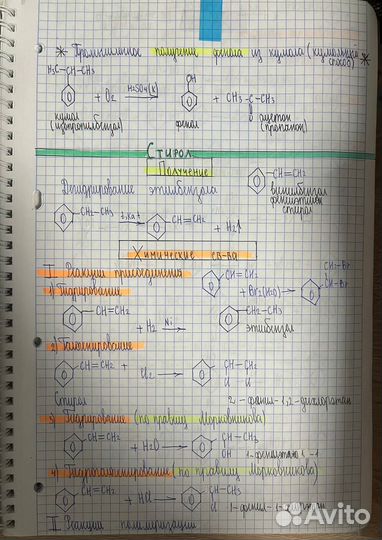 * Промышленное получение фенола из кумола (кумольный способ) *
H₃C-CH-CH₃
OH
+ O₂ H₂SO₄(к) + CH₃-C-CH₃
O
кумол фенол ацетон
(изопропилбензол) (пропанон)
Стирол
Получение
CH=CH₂
Дегидрирование этилбензола
винилбензол
фенилэтилен
стирол
CH₂-CH₃ t, kat CH=CH₂ + H₂↑
Химические св-ва
I. Реакции присоединения
CH=CH₂ + Br₂(H₂O) → CH₂-Br
CH-Br
1) Гидрирование
CH=CH₂ + H₂ Ni CH₂-CH₃
этилбензол
2) Галогенирование
CH=CH₂ + Cl₂ → CH-CH₂
Cl Cl
Стирол
-фенил-1,2-дихлорэтан
3) Гидрирование (по правилу Морковникова)
CH=CH₂ + H₂O → CH-CH₃
OH
1-фенилэтанол-1
4) Гидрогалогенирование (по правилу Морковникова)
CH=CH₂ + HCl → CH-CH₃
Cl
1-фенил-1-
II Реакции полимеризации
Avito